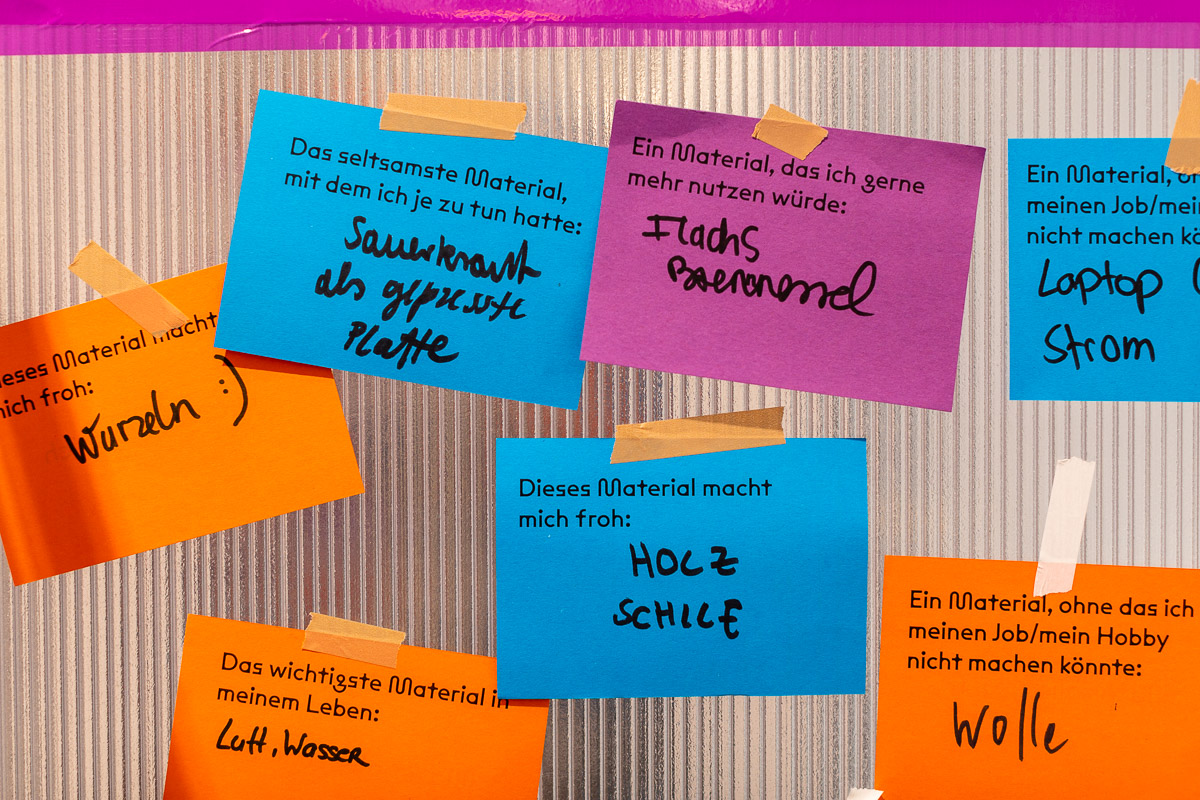 Das seltsamste Material,
mit dem ich je zu tun hatte:
Sauerkraut
als gepresste
Platte
Ein Material, das ich gerne
mehr nutzen würde:
Flachs
Ein Material,
meinen Job/mei
nicht machen kö
Laptop
Strom
ieses Material macht
mich froh:
Wurzeln :)
Dieses Material macht
mich froh:
HOLZ
SCHILF
Das wichtigste Material in
meinem Leben:
Luft, Wasser
Ein Material, ohne das ich
meinen Job/mein Hobby
nicht machen könnte:
Wolle